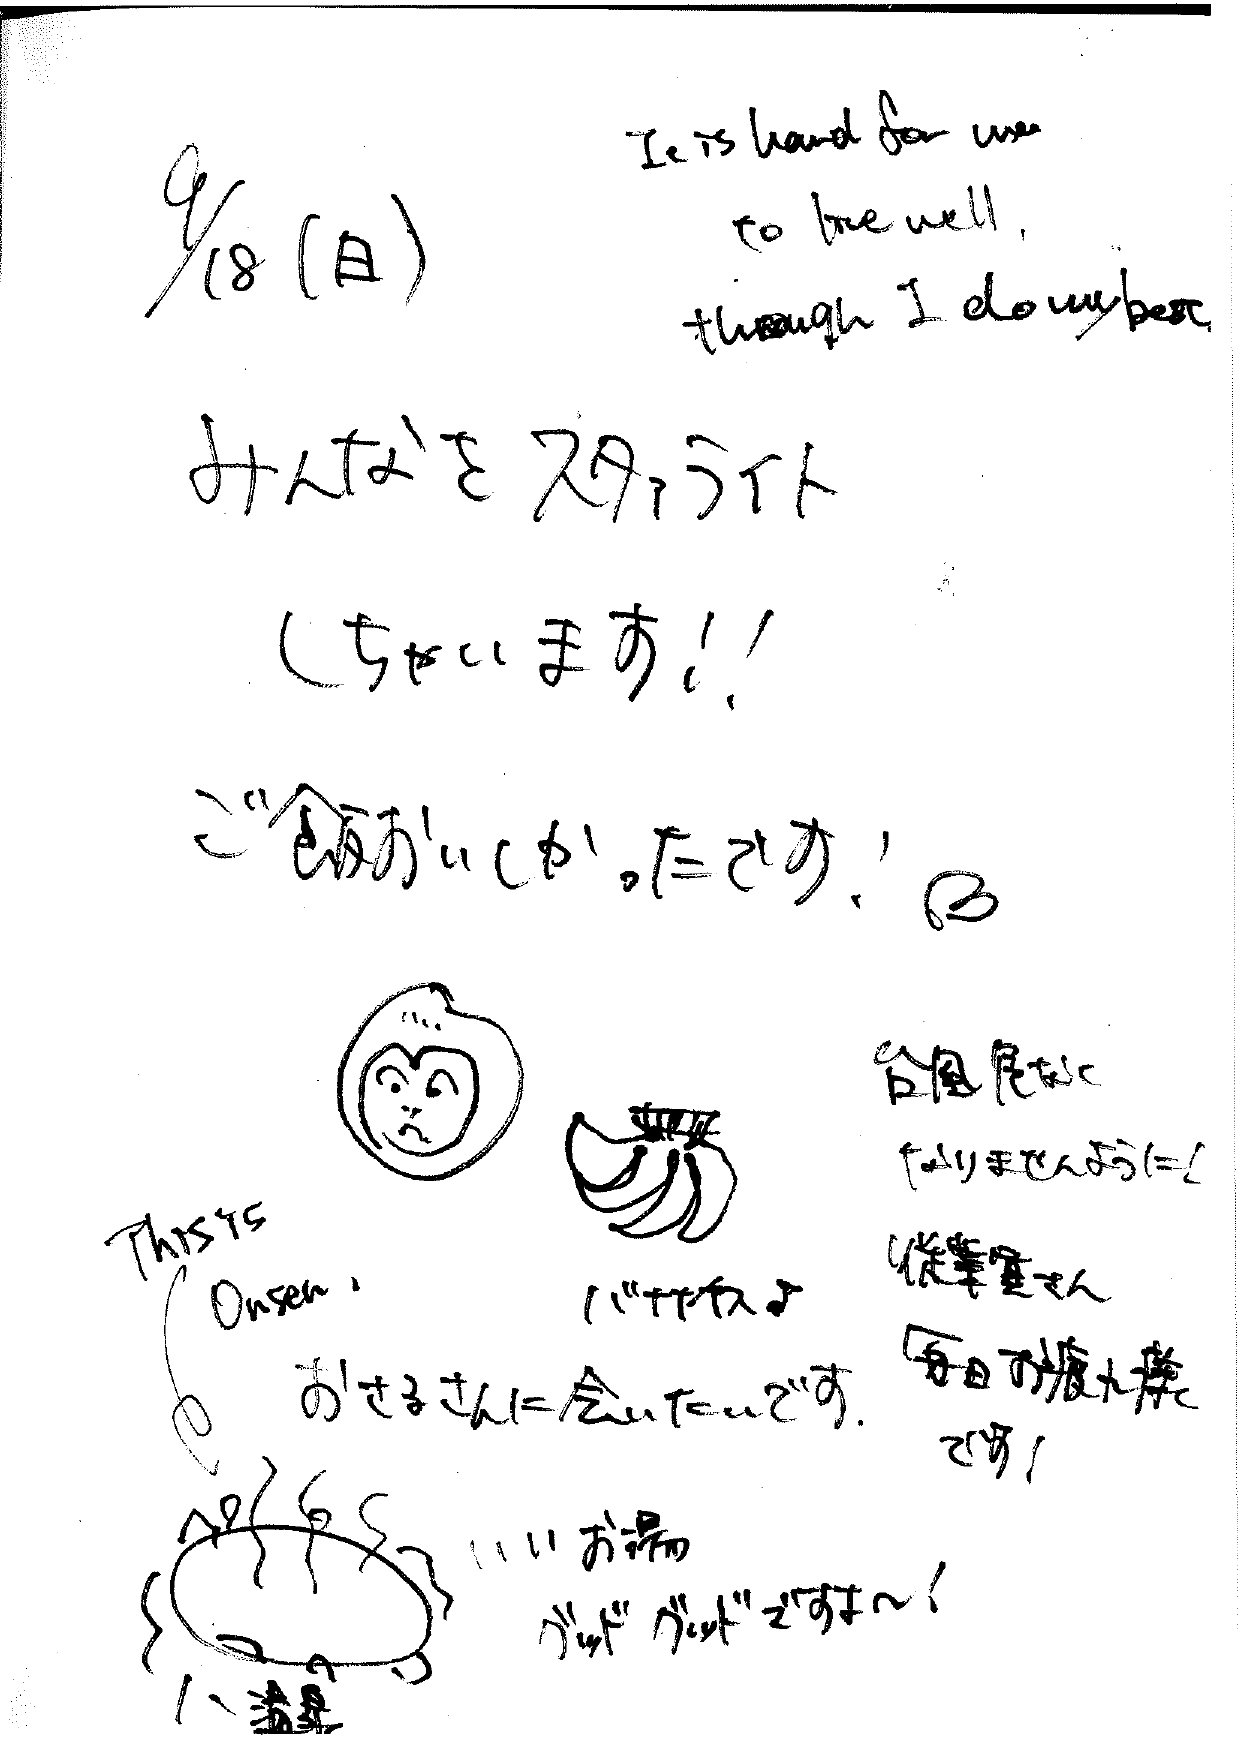 9/18(日)
It is hard for me
to live well,
though I do my best
みんなをスタァライト
しちゃいます!!
ご飯おいしかったです!
台風
なりませんように!
従業員さん
毎日お疲れ様
です!
This is
Onsen.
バナナ
おさるさんに会いたいです.
いいお湯
グッドグッドですよ~!